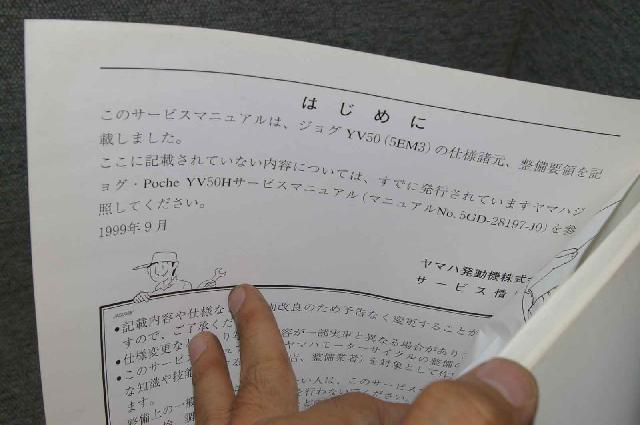 はじめに
このサービスマニュアルは、ジョグ YV50 (5EM3) の仕様諸元、整備要領を記
載しました。
ここに記載されていない内容については、すでに発行されていますヤマハジ
ョグ・Poche YV50Hサービスマニュアル (マニュアルNo. 5GD-28197-J0) を参
照してください。
1999年9月
ヤマハ発動機株式
サービス情
●記載内容や仕様な 改良のため予告なく変更することが
すので、ご了承くだ 容が一部実車と異なる場合があり
●仕様変更な
●このサービス ヤマハモーターサイクルの整備
な知識や技能 店、整備業者) を対象として作
ます。 い人は、このサービス
整備上の一般 を行わないでください。